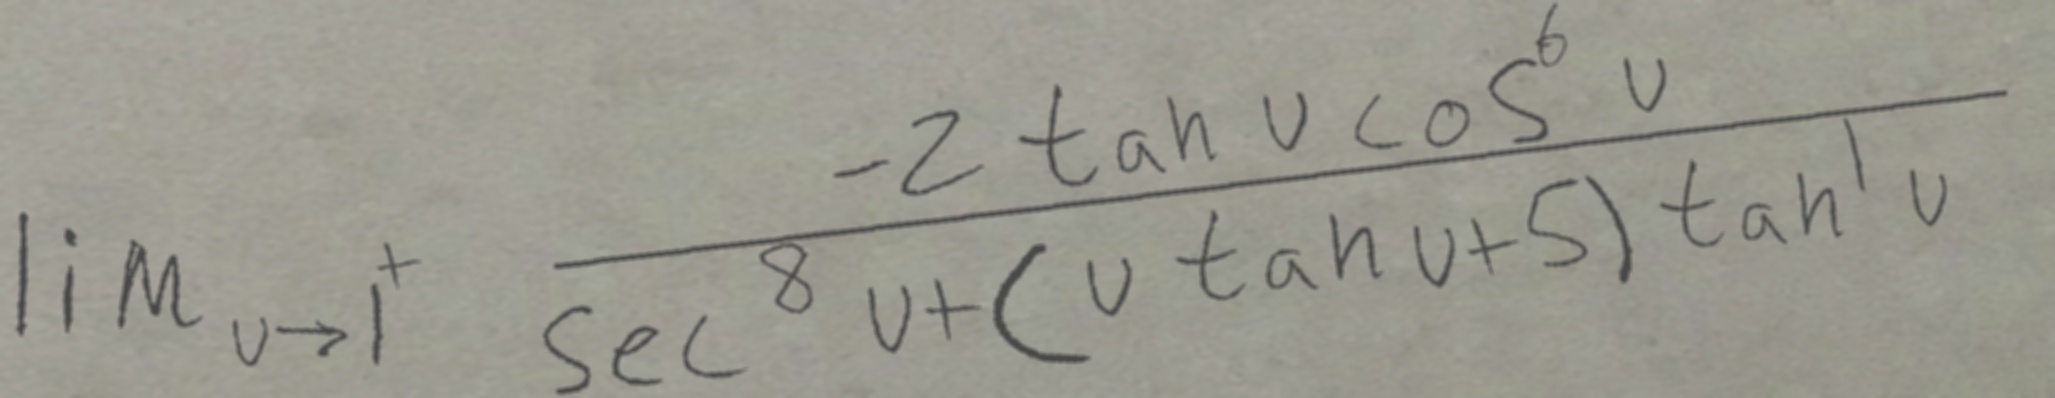 \lim_{v \to 1^+} \frac{-2 \tan v \cos^6 v}{\sec^8 v + (v \tan v + 5) \tan^1 v}